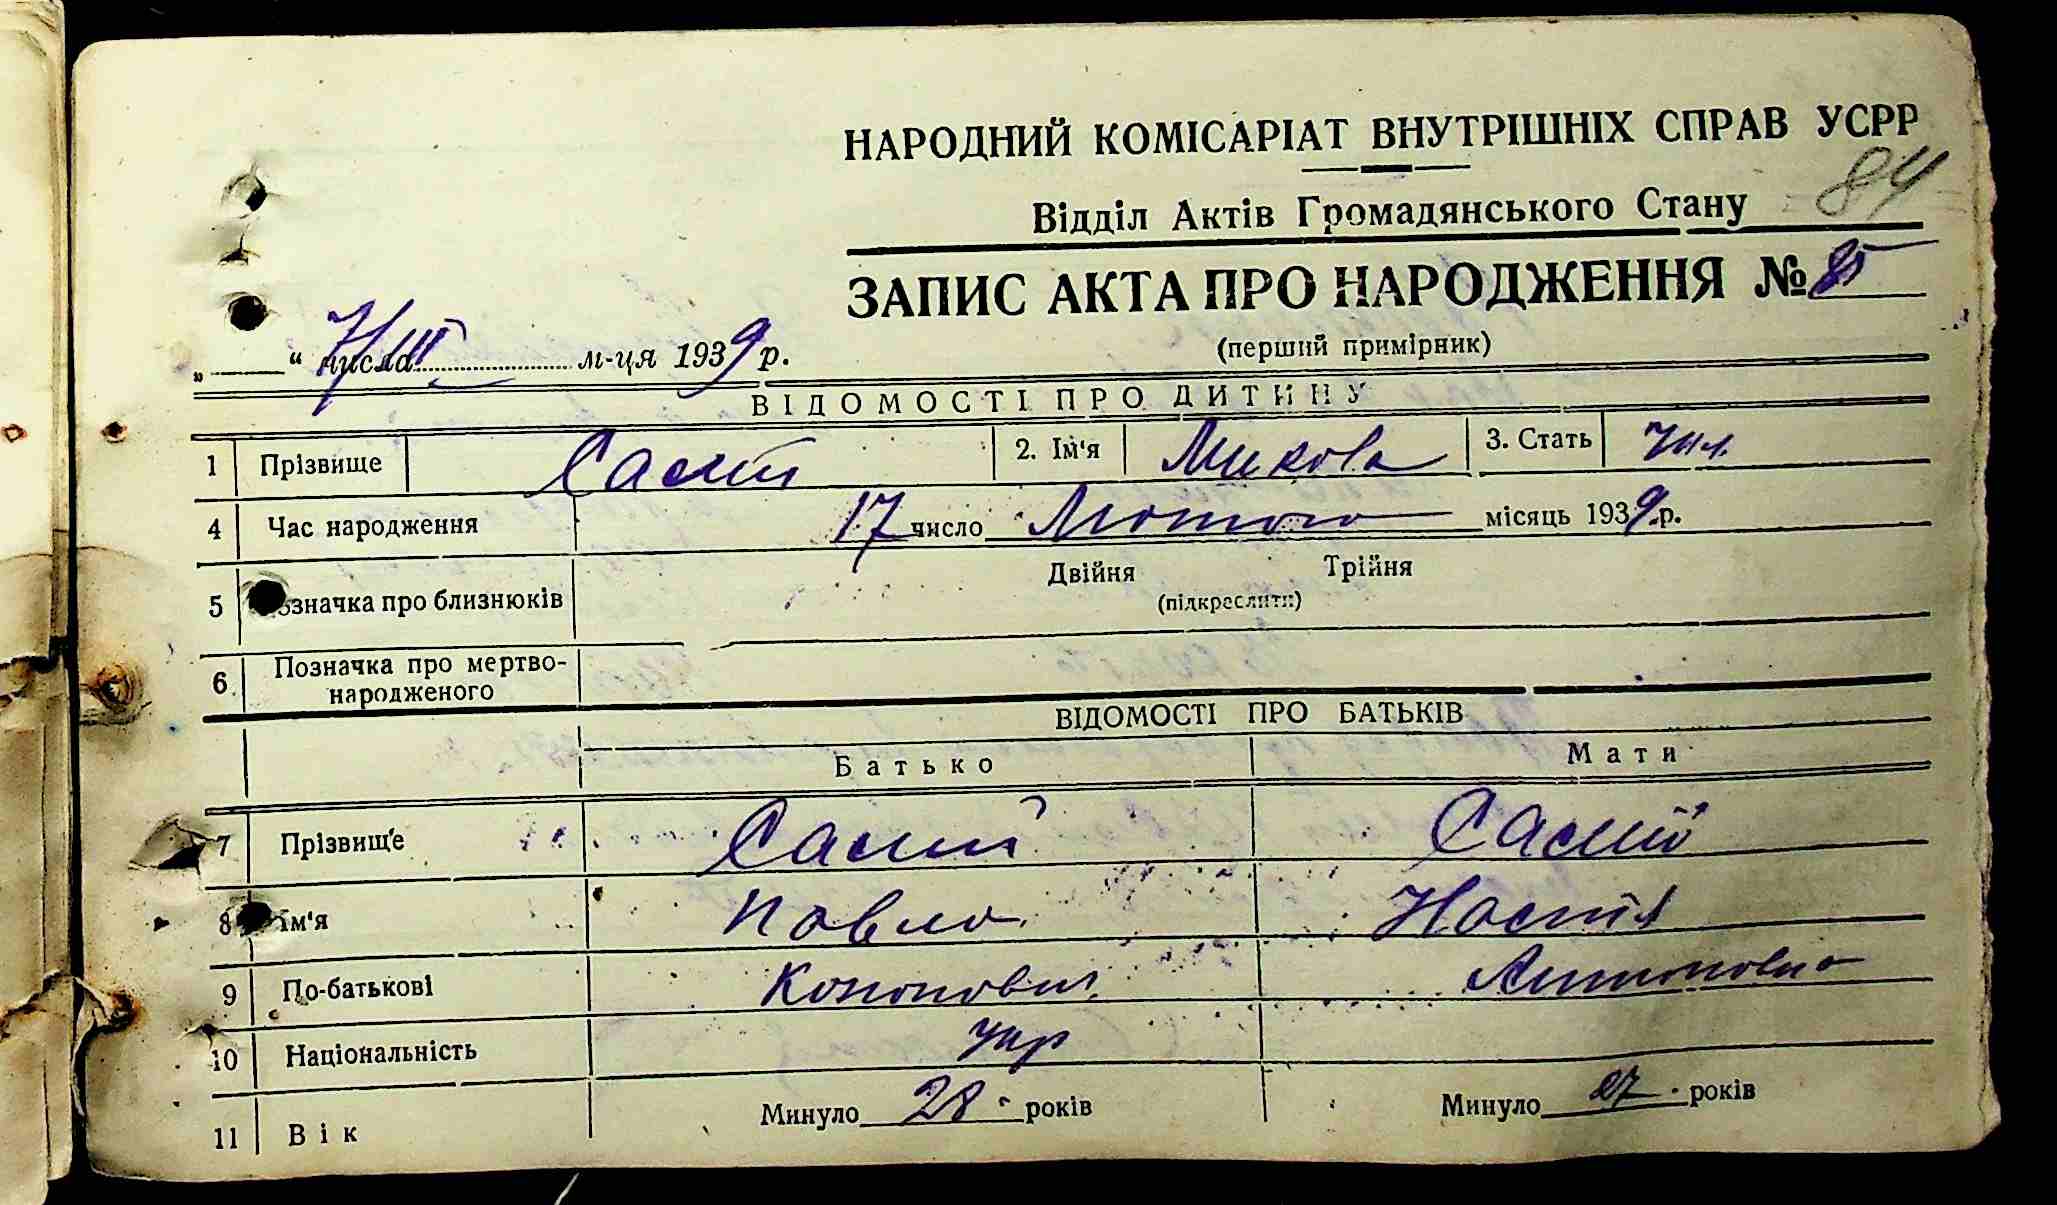 НАРОДНИЙ КОМІСАРІАТ ВНУТРІШНІХ СПРАВ УСРР
84
Відділ Актів Громадянського Стану
ЗАПИС АКТА ПРО НАРОДЖЕННЯ № 85
(перший примірник)
„ “ 7/III числа м-ця 1939 р.
ВІДОМОСТІ ПРО ДИТИНУ
1 Прізвище 2. Ім'я Микола 3. Стать чол.
4 Час народження 17 число Лютого місяць 1939 р.
5 Позначка про близнюків Двійня Трійня
(підкреслити)
6 Позначка про мертво-
народженого
ВІДОМОСТІ ПРО БАТЬКІВ
Батько Мати
7 Прізвище
8 Ім'я Павло Настя
9 По-батькові Кононович Антоновна
10 Національність укр
11 Вік Минуло 28 років Минуло 27 років